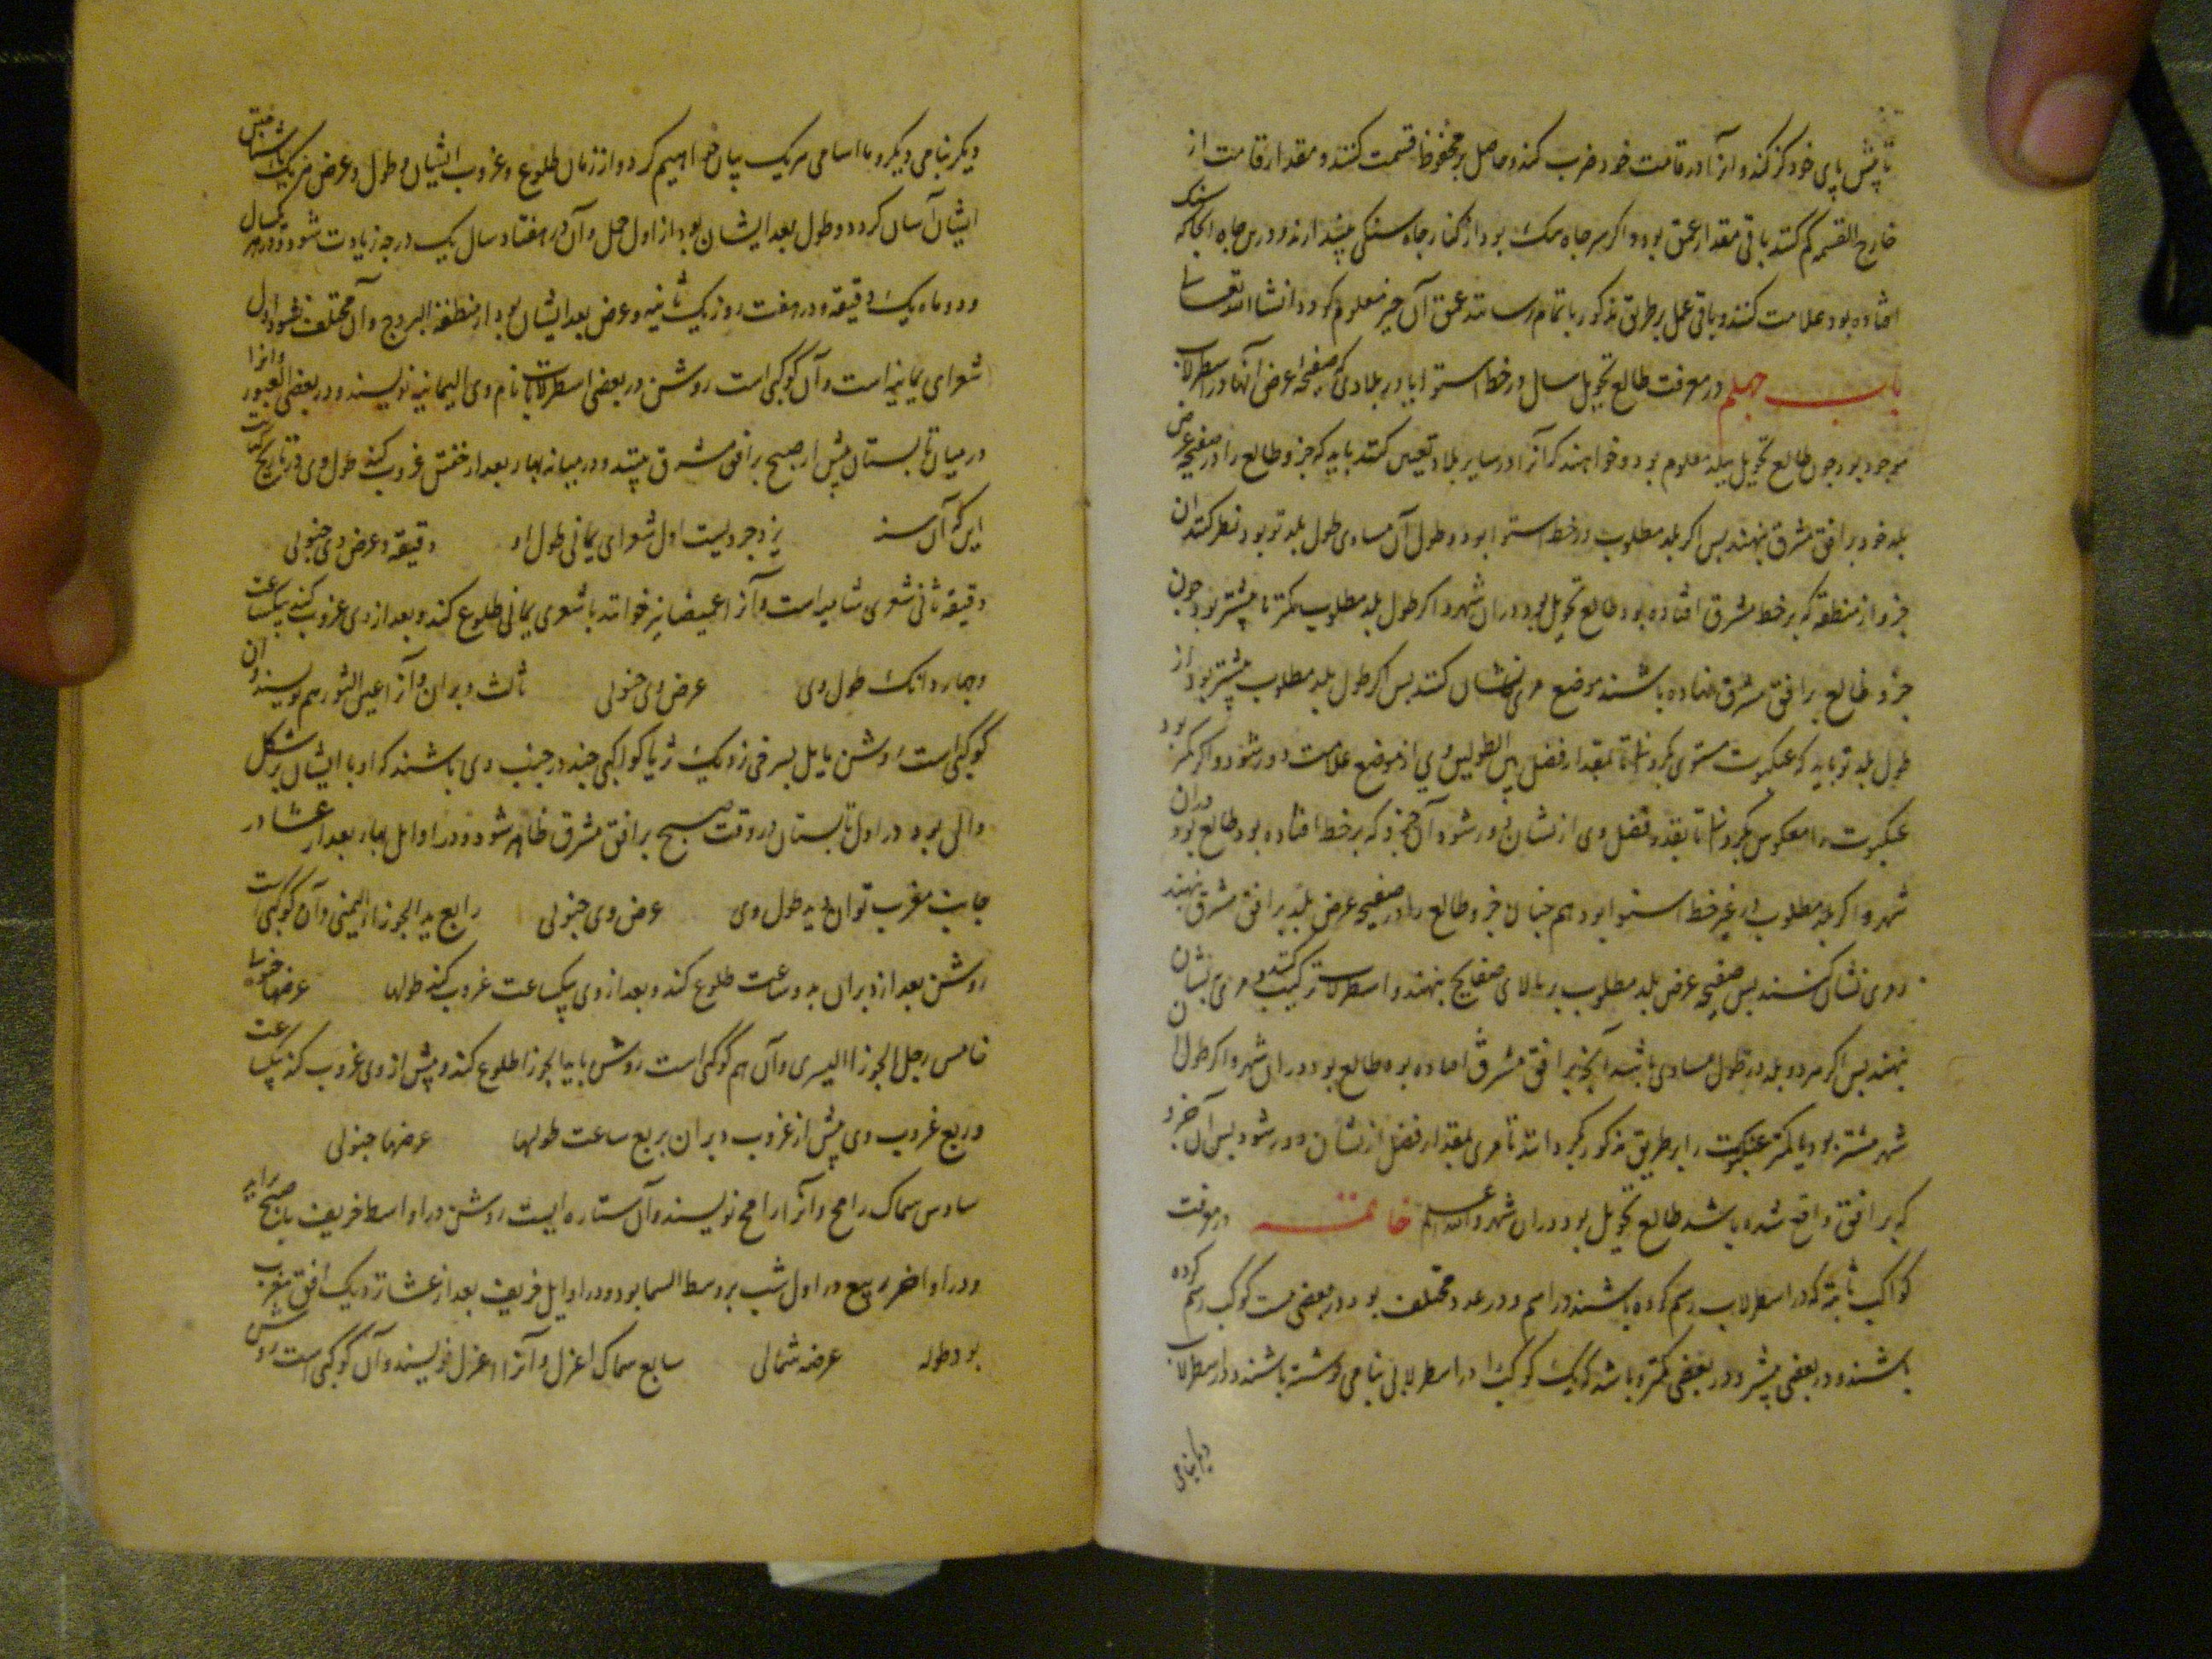 تا پیش پای خود کز کند و آنرا در قامت خود ضرب کند و حاصل بر محفوظ قسمت کنند و مقدار قامت از
خارج القسمه کم کنند باقی مقدار عمق بود و اکر سر جاه بود از کنار جاه سنکی بیندازند و در سر جاه انجا که سنک
افتاده بود علامت کنند و باقی عمل بر طریق مذکور باتمام رسانند عمق آن جیز معلوم کردد انشا الله تعالی
باب جهلم در معرفت طالع تحویل سال در خط استوا یا در بلادی که صفحه عرض آنها در اسطرلاب
موجود بود جون طالع تحویل ببلد معلوم بود و خواهند که آنرا در سایر بلاد تعیین کنند باید که جزو طالع را در صفیحه عرض
بلد خود بر افق مشرق نهند بس اکر بلد مطلوب در خط استوا بود و طول آن مساوی طول بلد تو بود نظر کنند ان
جزو از منطقه که بر خط مشرق افتاده بود طالع تحویل بود در ان شهر و اکر طول بلد مطلوب کمتر یا بیشتر بود جون
جزو طالع بر افق مشرق نهاده باشند موضع مری نشان کنند بس اکر طول بلد مطلوب بیشتر بود از
طول بلد تو باید که عنکبوت مستوی بکردانند تا بمقدار فضل بین الطولین مری از موضع علامت دور شود و اکر کمتر بود
عنکبوت را معکوس بکردانند تا بقدر فضل وی از نشان دور شود آن جزو که بر خط افتاده بود طالع بود دران
شهر و اکر بلد مطلوب در غیر خط استوا بود هم جنان جزو طالع را در صفیحه عرض بلد بر افق مشرق نهند
و مری نشان کنند بس صفیحه عرض بلد مطلوب بر بالای صفایح نهند و اسطرلاب ترکیب کنند و مری بنشان
نهند بس اکر هر دو بلد در طول مساوی باشد آنجه بر افق مشرق افتاده بود طالع بود در ان شهر و اکر طول ان
شهر بیشتر بود یا کمتر عنکبوت را بر طریق مذکور بکردانند تا مری بمقدار فضل از نشان دور شود بس آن جزو
که بر افق واقع شده باشد طالع تحویل بود در ان شهر و الله اعلم خاتمه در معرفت
کواکب ثابته که در اسطرلاب رسم کرده باشند در اسم و در عدد مختلف بود در بعضی بیست کوکب رسم کرده
باشند و در بعضی بیشتر و در بعضی کمتر و باشد که یک کوکب را در اسطرلابی بنامی نوشته باشند و در اسطرلاب
دیکر بنامی
دیکر بنامی دیکر و ما اسامی هر یک بیان خواهیم کرد و از زمان طلوع و غروب ایشان و طول و عرض هر یک تا شناختن
ایشان آسان کردد و طول بعد ایشان بود از اول حمل و آن در هفتاد سال یک درجه زیادت شود و در هر یکسال
و دو ماه یک دقیقه و در هفت روز یک ثانیه و عرض بعد ایشان بود از منطقة البروج و آن مختلف نشود اول
شعرای یمانیه است و آن کوکبی است روشن در بعضی اسطرلابها نام وی الیمانیه نویسند و در بعضی العبور و انرا
در میان تابستان پیش از صبح بر افق مشرق بینند و در میانه بهار بعد از خفتن غروب کند طول وی در تاریخ کتابت
این که آن سنه یزدجردیست اول شعرای یمانی طول او دقیقه و عرض وی جنوبی
دقیقه ثانی شعری شامیه است و آنرا غمیصا نیز خوانند با شعری یمانی طلوع کند و بعد از وی غروب کند بیکساعت
و جهار دانک طول وی عرض وی جنوبی ثالث دبران و آنرا عین الثور هم نویسند و ان
کوکبی است روشن مایل بسرخی نزدیک ثریا کواکبی جند در جنب وی باشند که او با ایشان بر شکل
دالی بود در اول تابستان در وقت صبح بر افق مشرق ظاهر شود و در اوایل بهار بعد از عشا در
جانب مغرب توان دید طول وی عرض وی جنوبی رابع ید الجوزا الیمنی و آن کوکبی است
روشن بعد از دبران بدو ساعت طلوع کند و بعد از وی بیکساعت غروب کند طولها عرضها جنوبا
خامس رجل الجوزا الیسری و آن هم کوکبی است روشن با ید الجوزا طلوع کند و پیش از وی غروب کند بیک ساعت
و ربع غروب وی پیش از غروب دبران بربع ساعت طولها عرضها جنوبی
سادس سماک رامح و آنرا رامح نویسند و آن ستاره ایست روشن در اواسط خریف با صبح براید
و در اواخر ربیع در اول شب بر وسط السما بود و در اوایل خریف بعد از عشا نزدیک افق مغرب
بود طوله عرضه شمالی سابع سماک اعزل و آنرا اعزل نویسند و آن کوکبی است روشن